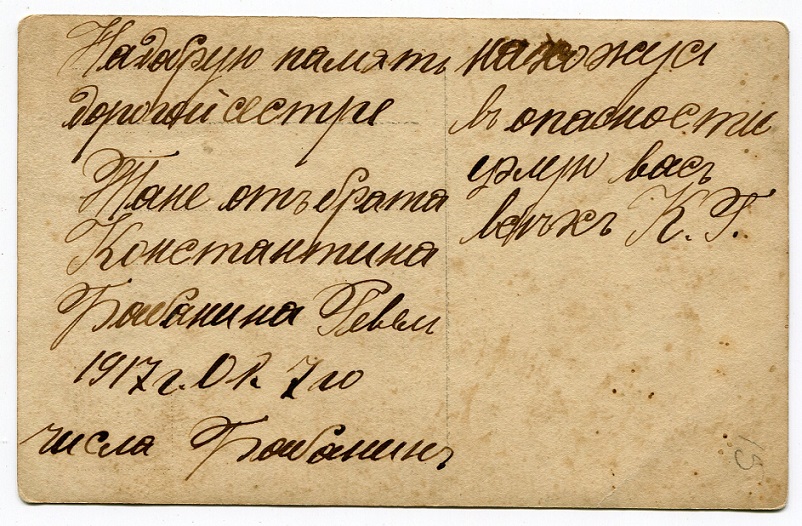 На добрую память
дорогой сестре
Тане отъ брата
Константина
Ревел
1917 г. Ок. 7 го
числа
нахожус
въ опасности
васъ
всѣхъ К. Г.
15